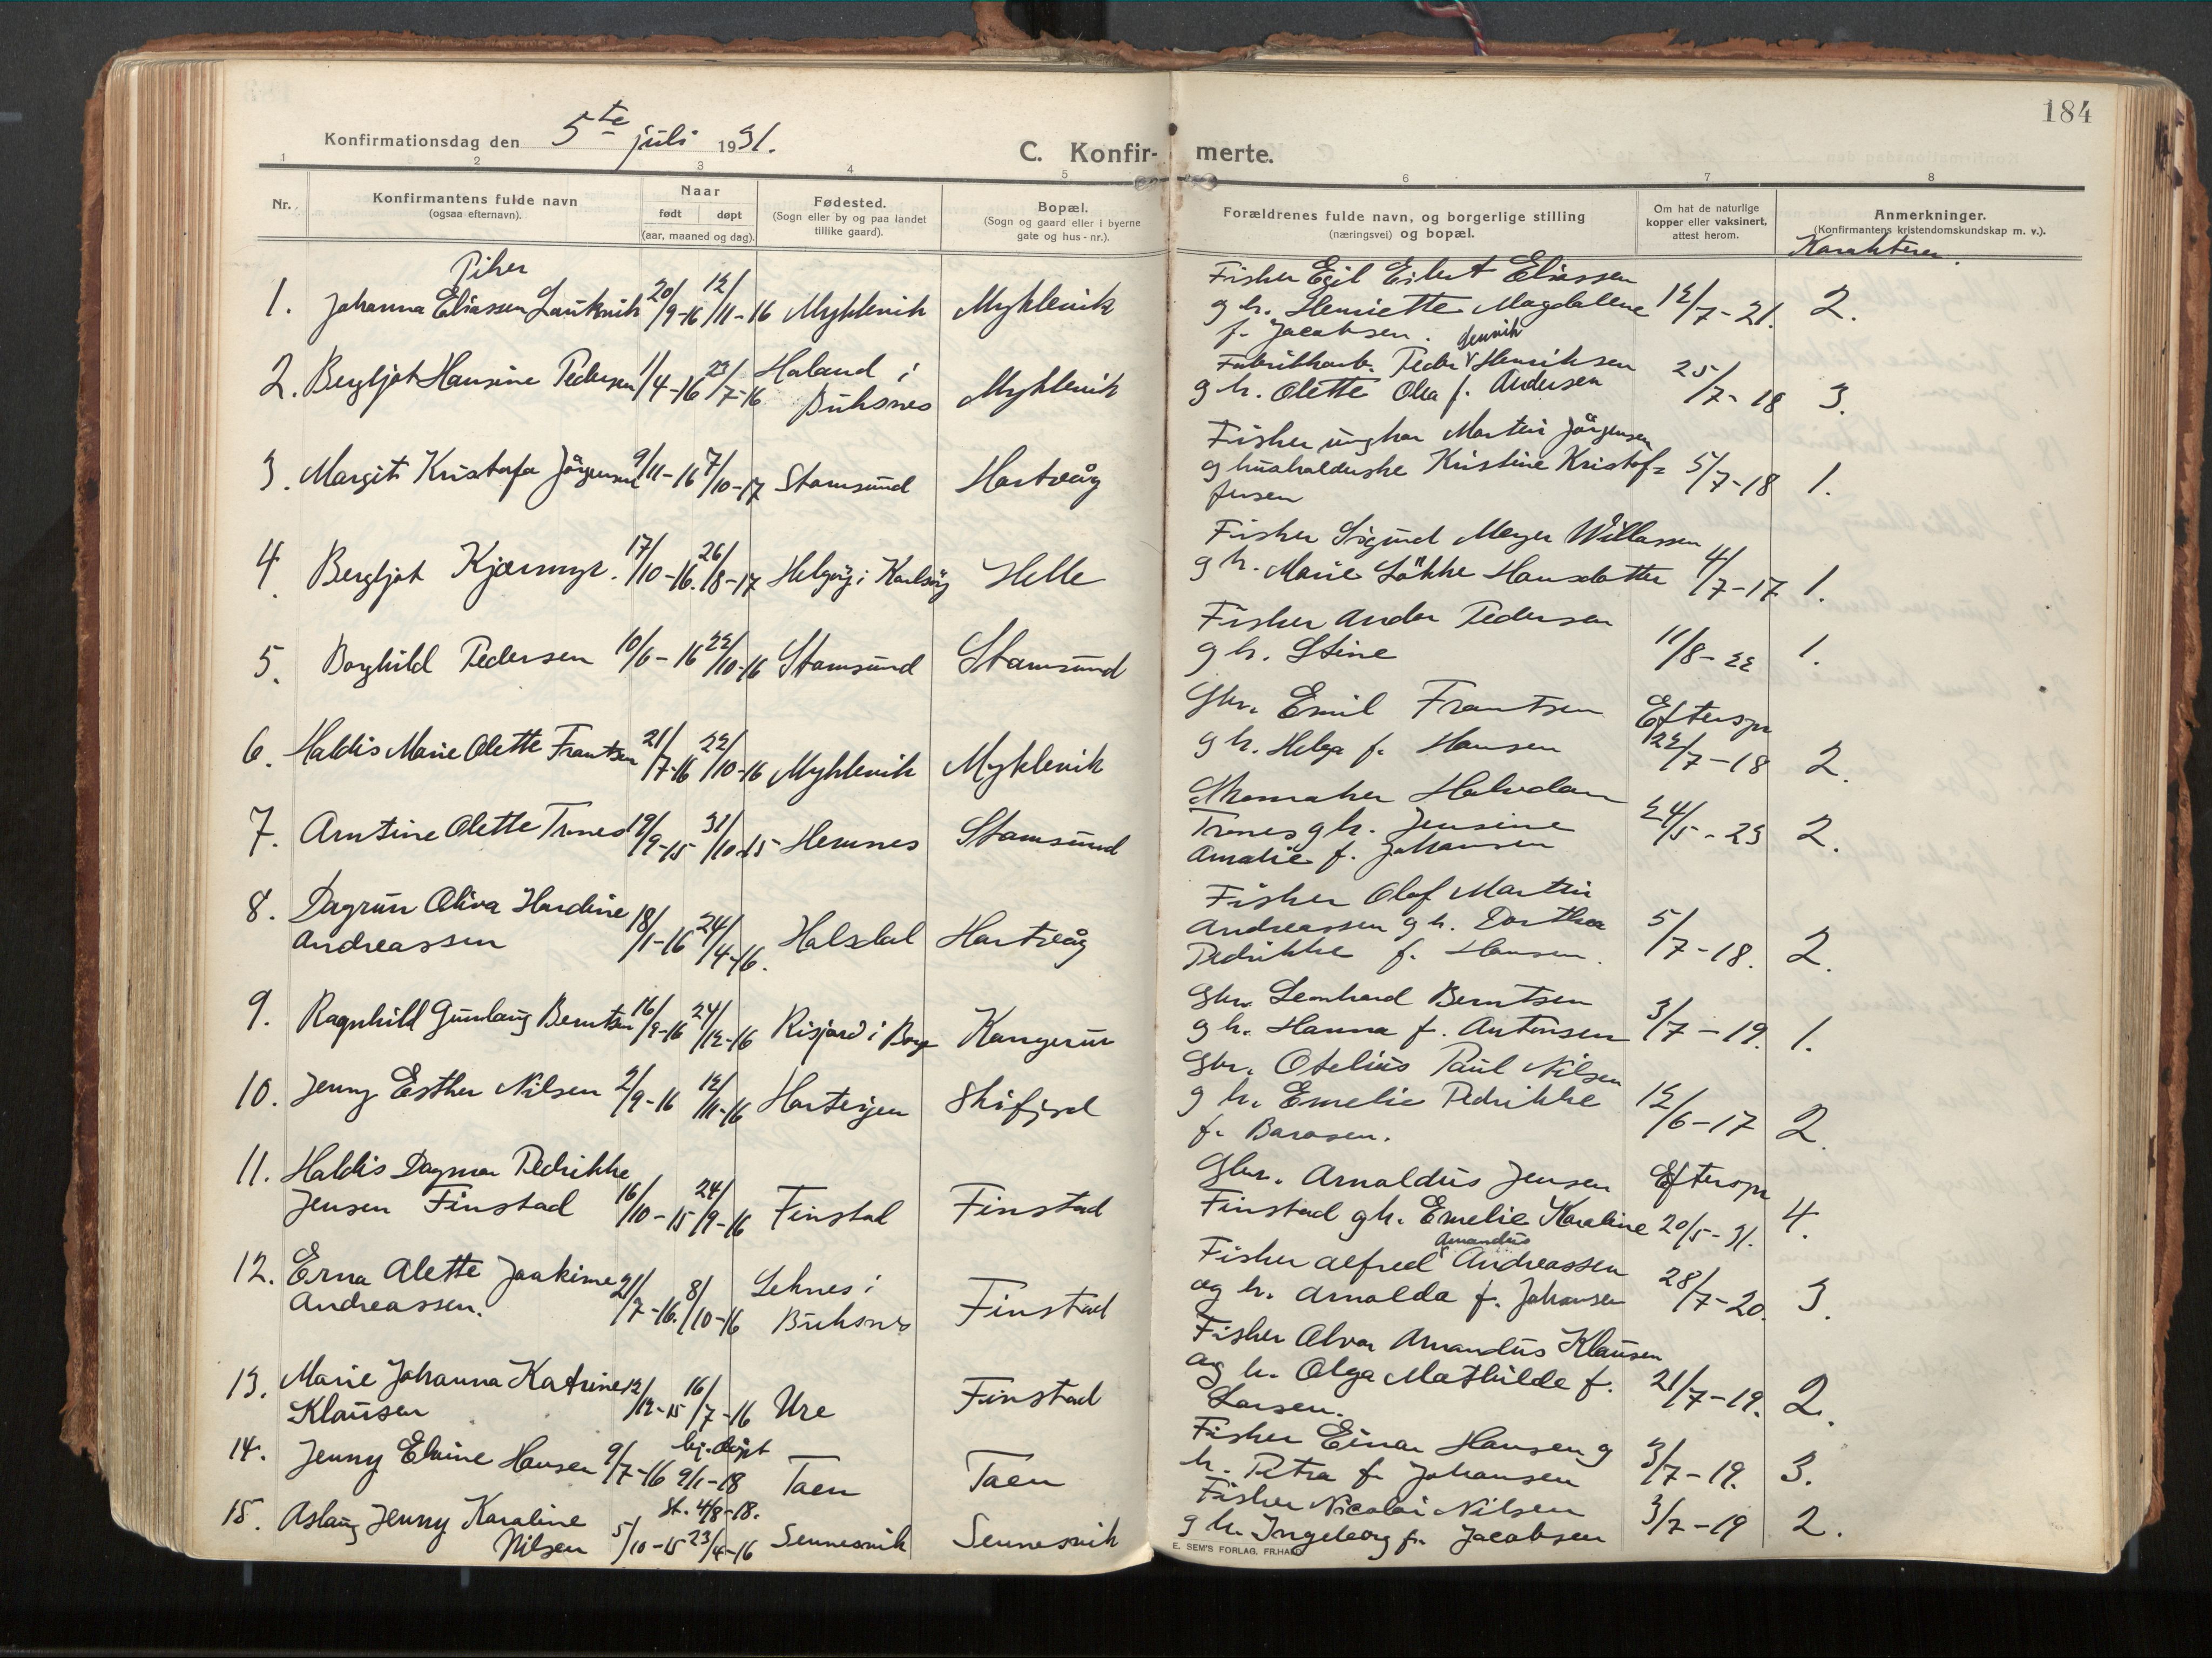 184
Konfirmationsdag den 5te juli 1931.
C. Konfir- merte.
1 2 3 4 5 6 7 8
Nr. Konfirmantens fulde navn (ogsaa efternavn). Naar født døpt (aar, maaned og dag). Fødested. (Sogn eller by og paa landet tillike gaard). Bopæl. (Sogn og gaard eller i byerne gate og hus-nr.). Forældrenes fulde navn, og borgerlige stilling (næringsvei) og bopæl. Om hat de naturlige kopper eller vaksinert, attest herom. Anmerkninger. (Konfirmantens kristendomskundskap m. v.).
Karakteren.
Piker
1. Johanna Eliassen Laukvik 20/9-16 12/11-16 Myklevik Myklevik
Fisker Egil Eilert Eliassen
g h. Henriette Magdalene 12/7-21. 2.
f. Jacobsen.
2. Bergljot Hansine Pedersen 1/4-16 23/7-16 Haland i
Buksnes Myklevik
Fabrikkarb. Peder Henriksen
g h. Olette Olea f. Andersen 25/7-18 3.
3. Margit Kristofa Jörgensen 9/11-16 7/10-17 Stamsund Hartvåg
Fisker ungkar Martin Jörgensen
g husholderske Kristine Kristof= 5/7-18 1.
fersen
4. Bergljot Kjærmyr. 17/10-16. 26/8-17 Helgöy i Karlsöy Helle
Fisker Sigurd Meyer Willassen
g h. Marie Lökke Hansdatter 4/7-17 1.
5. Borghild Pedersen 10/6-16 22/10-16 Stamsund Stamsund
Fisker Andor Pedersen
g h. Stine 11/8-22 1.
6. Haldis Marie Olette Frantsen 21/7-16 22/10-16 Myklevik Myklevik
Gbr. Emil Frantsen Efterspr
g h. Helga f. Hansen 22/7-18 2.
7. Arntine Olette Trones 19/9-15 31/10-15 Hemnes Stamsund
Skomaker Halvdan
Trones g h. Jensine 24/5-23 2.
Amalie f. Johansen
8. Dagrun Oliva Hardine
Andreassen 18/1-16 24/4-16. Halsdal Hartvåg
Fisker Olaf Martin
Andreassen g h. Dorthea 5/7-18. 2.
Pedrikke f. Hansen.
9. Ragnhild Gunlaug Berntsen 16/9-16 24/12-16 Risjord i Borge Kangerur
Gbr. Leonhard Berntsen
g h. Hanna f. Antonsen 3/7-19. 1.
10. Jenny Esther Nilsen 2/9-16 12/11-16 Hartvigen Skifjord
Gbr. Otelius Paul Nilsen
g h. Emelie Pedrikke 12/6-17 2.
f. Barosen.
11. Haldis Dagmar Pedrikke
Jensen Finstad 16/10-15 24/9-16 Finstad Finstad
Gbr. Arnaldus Jensen Efterspr
Finstad g h. Emelie Karaline 20/5-31. 4.
12. Erna Alette Joakime
Andreassen. 21/7-16. 8/10-16 Leknes i
Buksnes Finstad
Fisker Alfred Amandus Andreassen
og h. Arnolda f. Johansen 28/7-20. 3.
13. Marie Johanna Katrine
Klausen 12/12-15 16/7-16 Ure Finstad
Fisker Alvar Amandus Klausen
og h. Olga Mathilde f. 21/7-19. 2.
Larsen.
14. Jenny Elvine Hansen 9/7-16 hj.döpt 9/1-18 Taen Taen
st. 4/8-18.
Fisker Einar Hansen g
h. Petra f. Johansen 3/7-19. 3.
15. Aslaug Jenny Karaline
Nilsen 5/10-15 23/4-16 Sennesvik Sennesvik
Fisker Nicolai Nilsen
g h. Ingeborg f. Jacobsen 3/7-19 2.
E. SEM'S FORLAG, FR.HALD